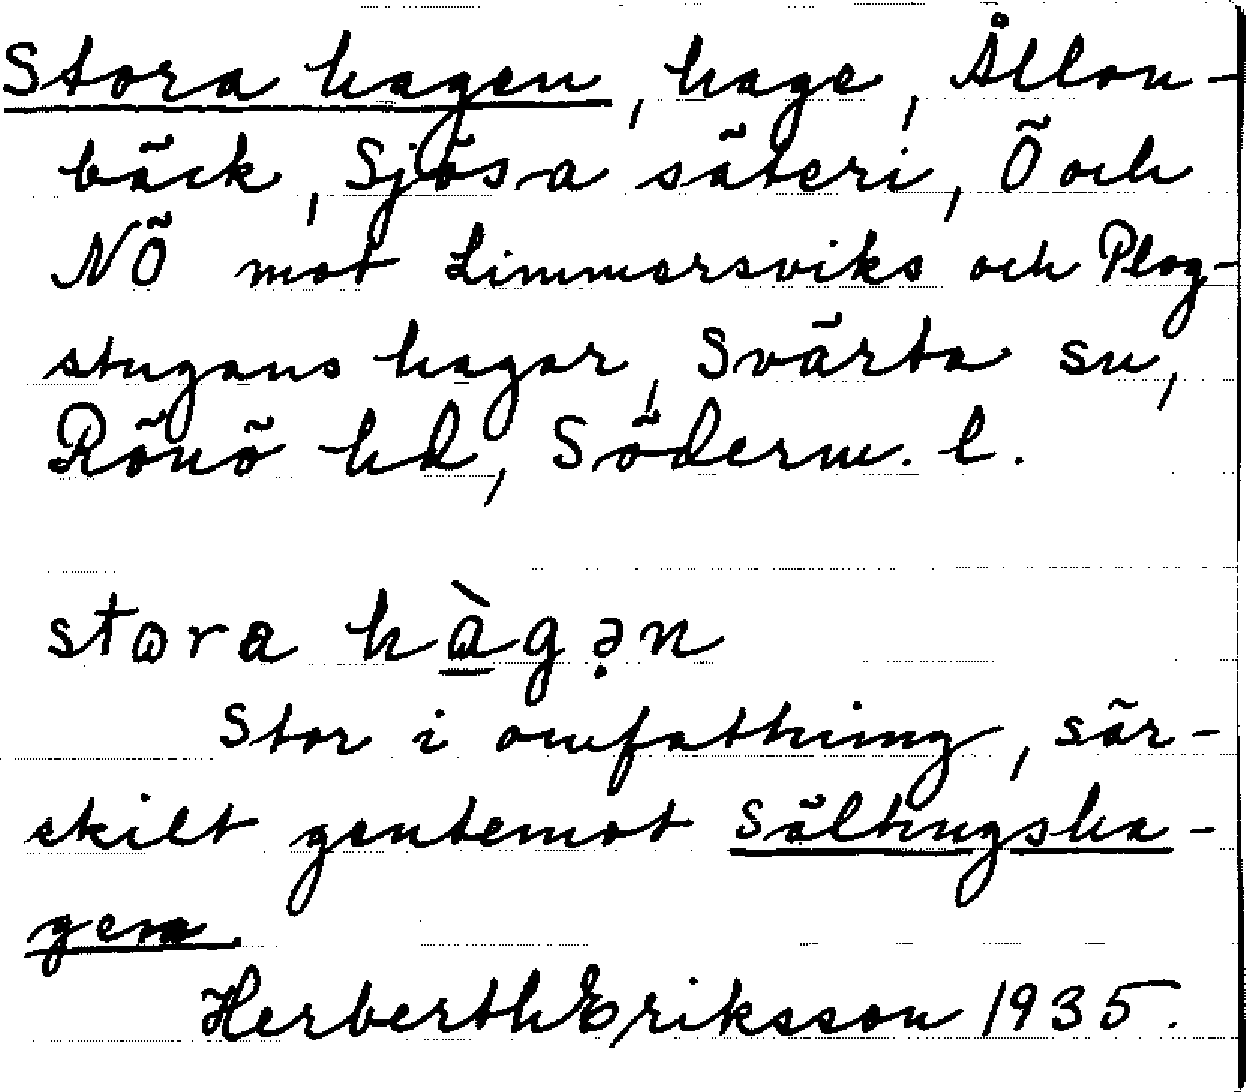 Stora hagen, hage, Ållon-
bäck, Sjösa säteri, Ö och
NÖ mot Limmersviks och Plog-
stugans hagar, Svärta sn,
Rönö hd, Söderm. l.
stωra hàgən
Stor i omfattning, sär-
skilt gentemot Sältingsha-
gen.
Herberth Eriksson 1935.